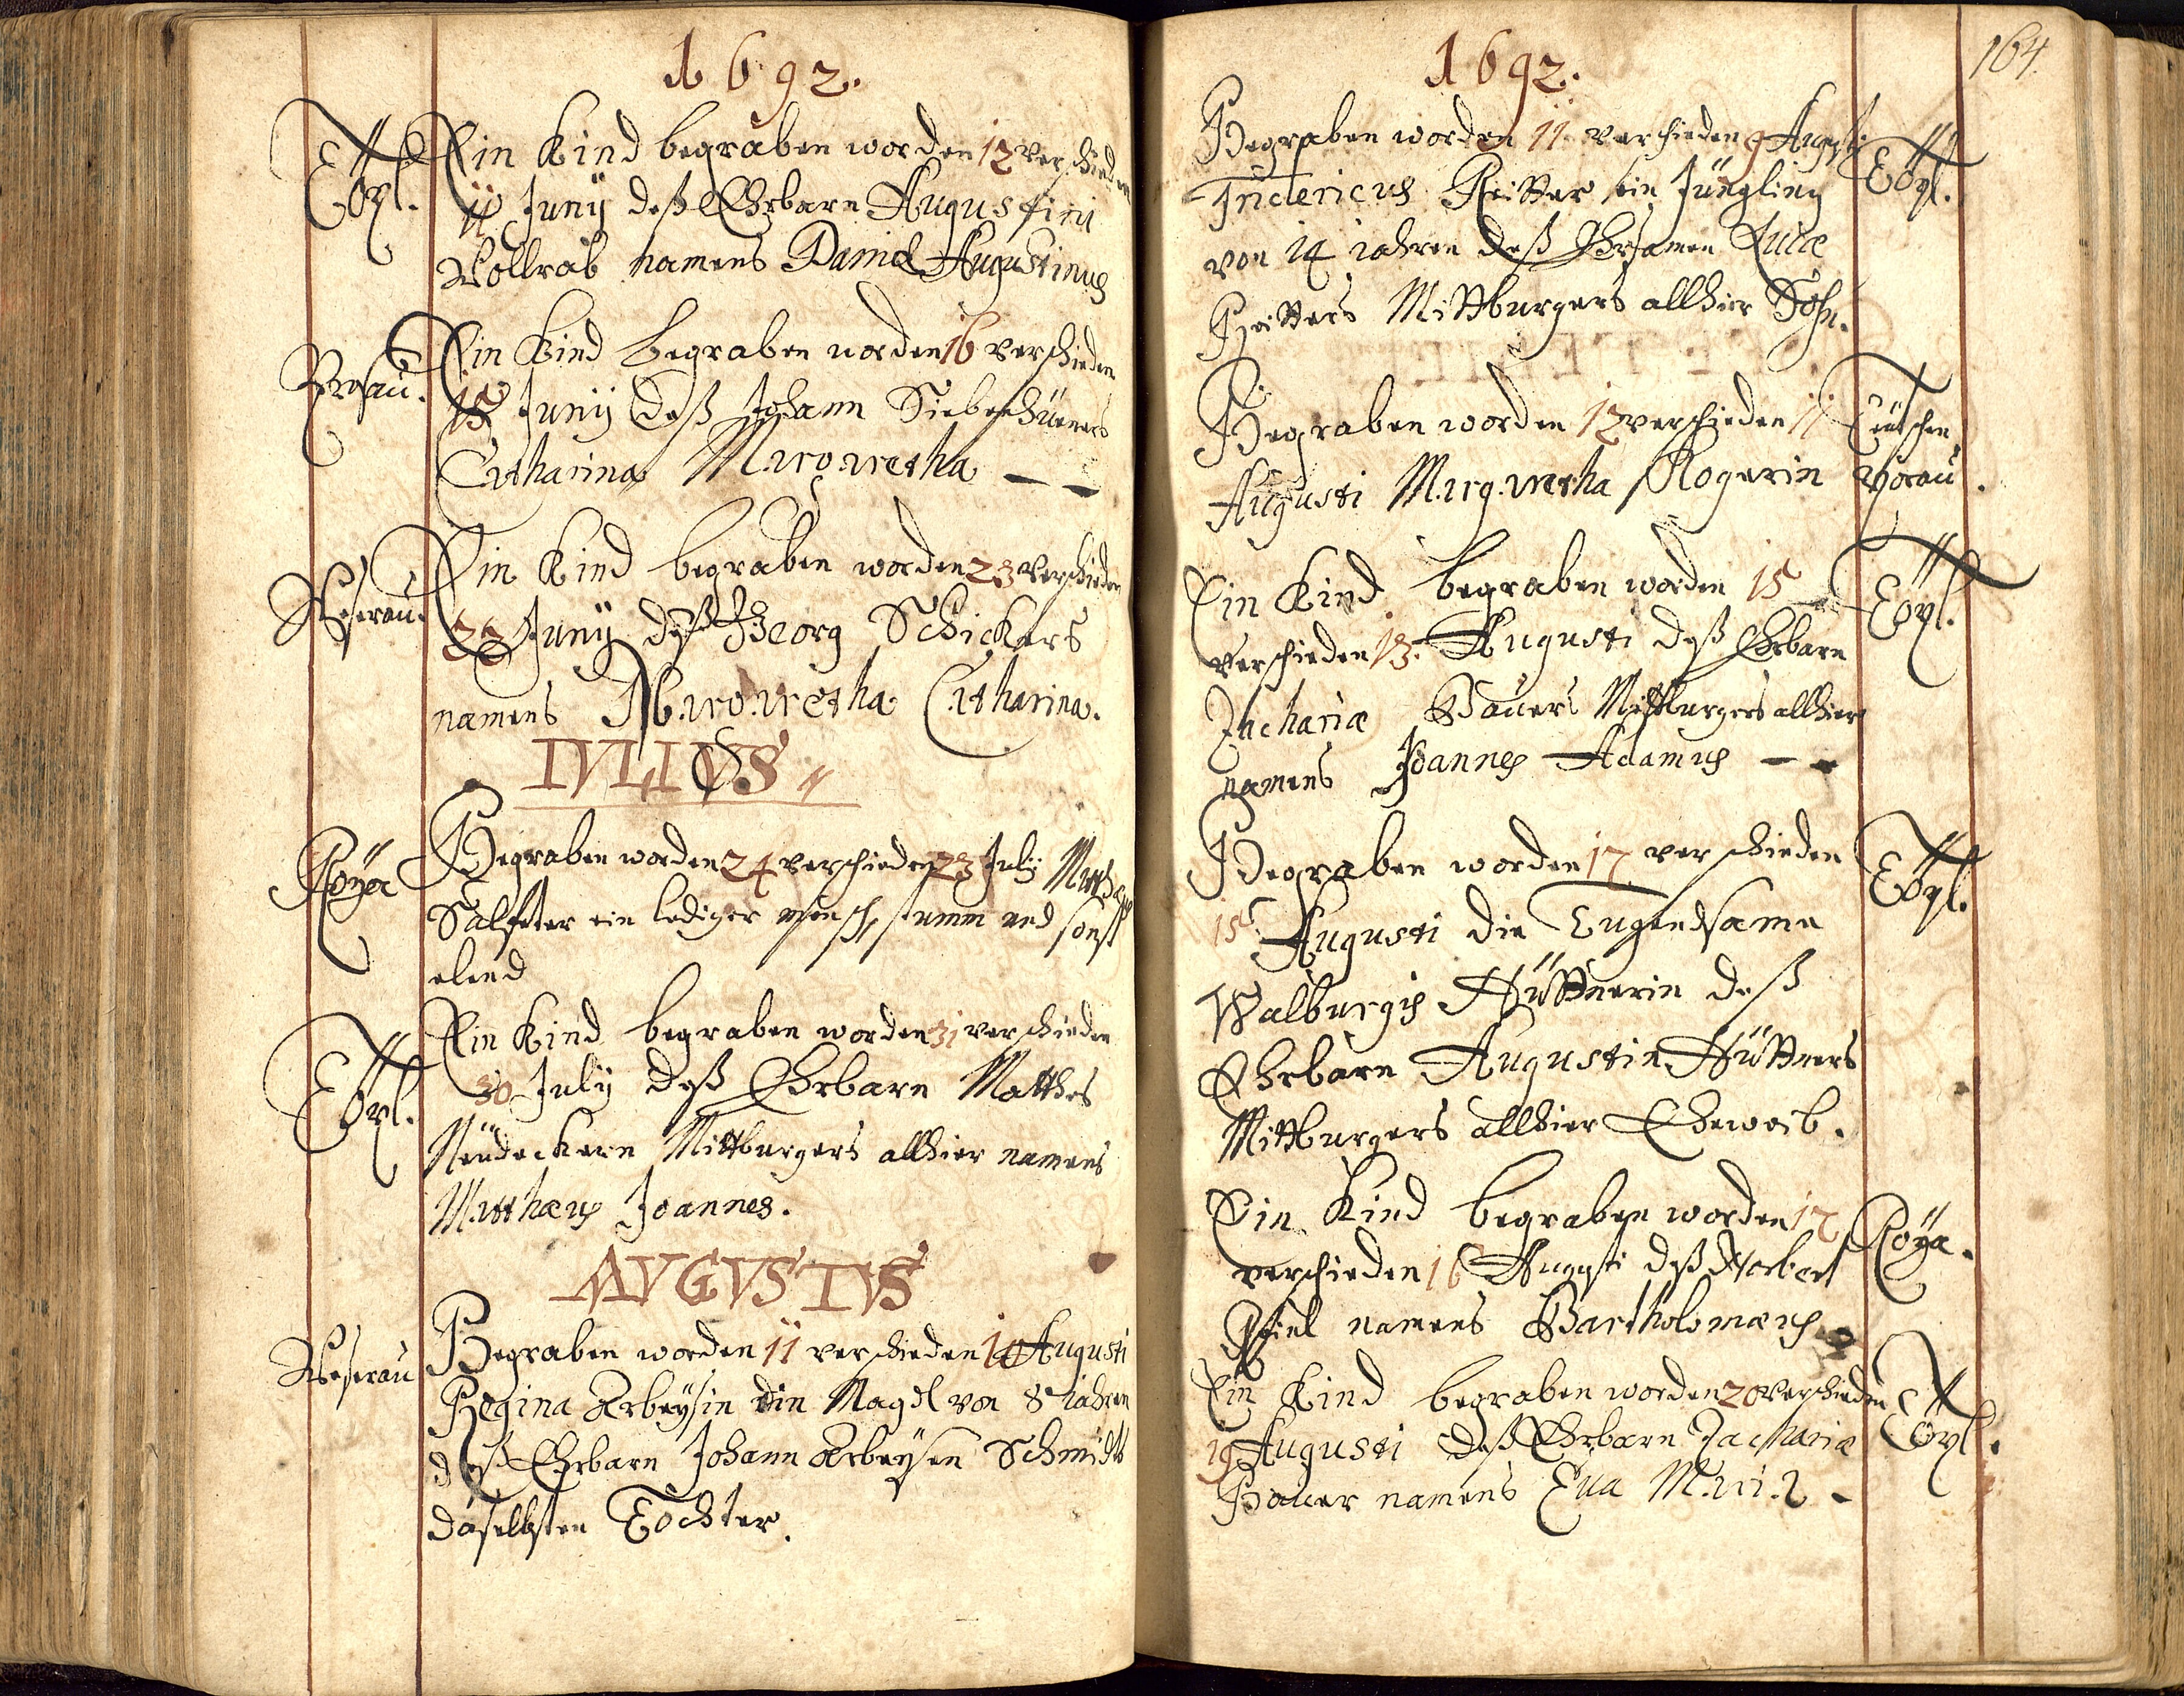 1692.
Töpl. Ein Kind begraben worden 12 verschieden
11 Juny deß Ehrbarn Augustini
Vollrab namens Daniel Augustinus
Prosau. Ein Kind begraben worden 16 verschieden
15 Juny deß Johann Siebenhüeners
Catharina Margaretha
Weserau. Ein Kind begraben worden 23 verschieden
22 Juny deß Georg Schickers
namens Margaretha Catharina.
IVLIVS
Royä Begraben worden 24 verschieden 23 July
Salfeter ein lediger mensch, stumm und sonst
elend
Töpl. Ein Kind begraben worden 31 verschieden
30 July deß Ehrbarn Matthes
Neüdeckern Mittburgers allhier namens
Matthæus Joannes.
AVGVSTVS
Weserau Begraben worden 11 verschieden 10 Augusti
Regina Arbeysin ein Magdl von 8 iahren
deß Ehrbarn Johann Arbeysen Schmidts
daselbsten Tochter.
164.
1692.
Begraben worden 11 verschieden 9 Augusti Töpl.
Fridericus Reitter ein Jüngling
von 14 iahren deß Ehrsamen Lucæ
Reitters Mittburgers allhier Sohn.
Begraben worden 12 verschieden 11 Teütschen
Augusti Margaretha Rogerin Thorau.
Ein Kind begraben worden 15 Töpl.
verschieden 13. Augusti deß Ehrbarn
Zachariæ Bauers Mittburgers allhier
namens Joannes Adamus
Begraben worden 17 verschieden Töpl.
15 Augusti die Tugendsame
Walburgis Hüttnerin deß
Ehrbarn Augustin Hüttners
Mittburgers allhier Eheweib.
Ein Kind begraben worden 17 Royä.
verschieden 16 Augusti deß Norbert
namens Bartholomæus
Ein Kind begraben worden 20 verschieden Töpl.
19 Augusti deß Ehrbarn Zachariæ
Bauer namens Eua Maria